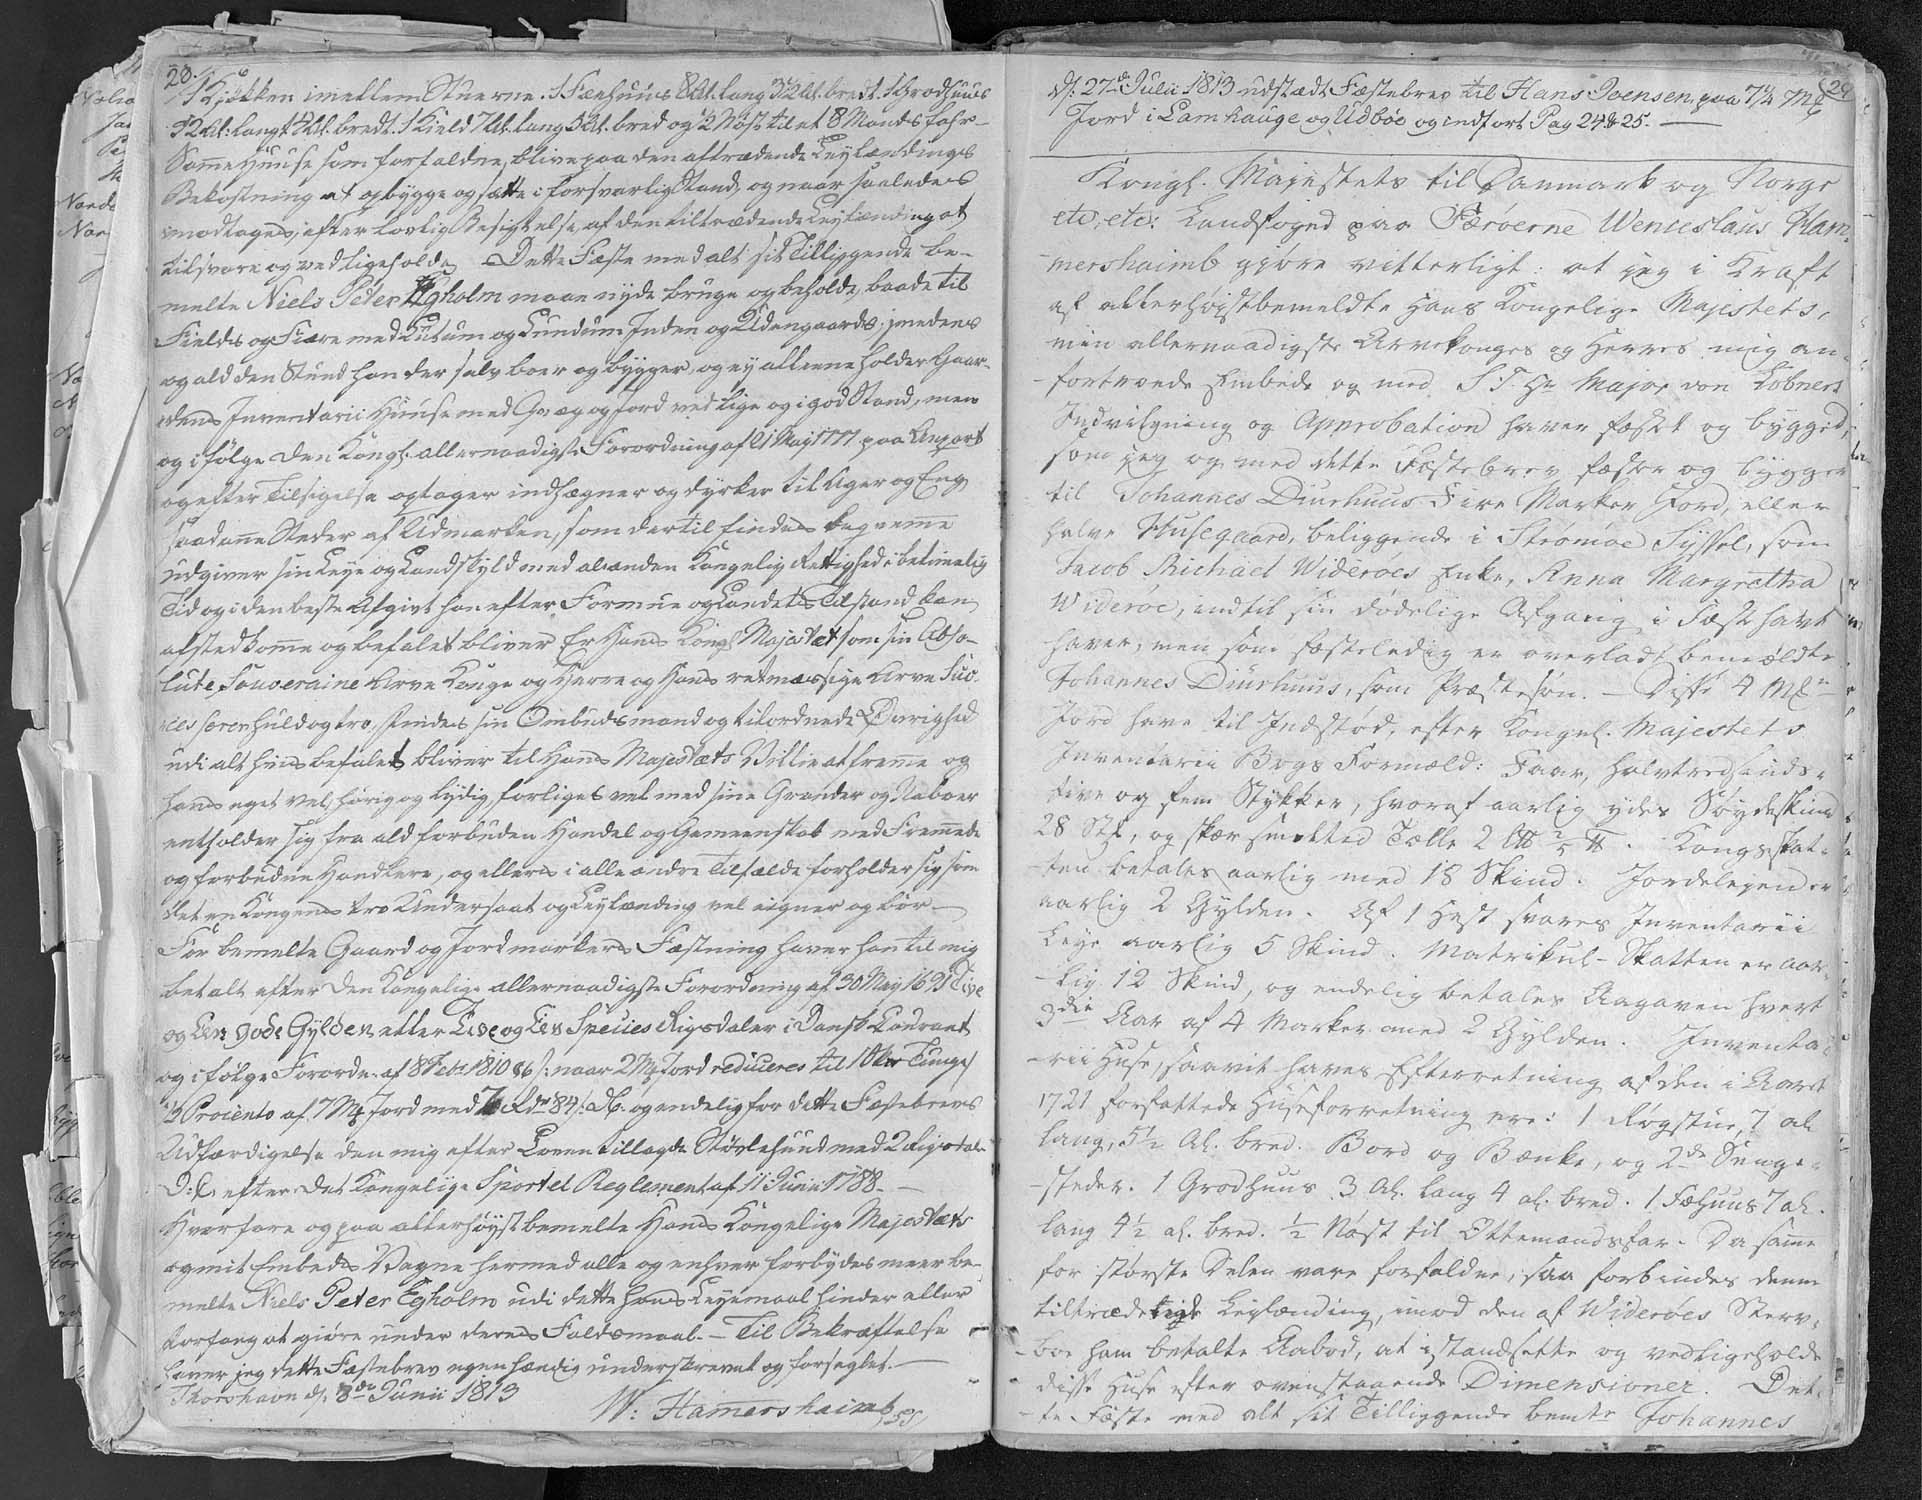 28.
1 Kjøkken imellem Stuerne. 1 Fæehuus 8 Al. lang 3½ Al. bredt. 1 Grodhuus
5½ Al. langt 4 Al. bredt. 1 Kield 7 Al. lang 5 Al. bred og ½ Nøst til et 8 Mands fahr –
Samme Huuse som forfaldne, blive paa den aftrædende Leylændings
Bekostning at opbygge og sætte i forsvarlig Stand, og naar saaledes
modtages, efter lovlig Besigtelse, af den tiltrædende Leylænding at
tilsvare og vedligeholde. Dette Fæste med alt sit Tilliggende be-
melte Niels Peter Egholm maae nyde bruge og beholde, baade til
Fields og Fiære med Lutum og Lundum Inden og Udengaards, imedens
og ald den Stund han der selv boer og bygger, og ey alleene holder Gaar-
dens Inventarii Huuse med Qvæg og Jord ved lige og i god Stand, men
og i følge den Kongl. allernaadigste Forordning af 21 Maj 1777. paa Anpart
og efter Tilsigelse optager indhægner og dyrker til Ager og Eng
saadanne Steder af Udmarken, som dertil findes beqvemme
udgiver sin Leye og Landskyld med al anden Kongelig Rettighed i betimelig
Tid og i den beste Afgivt han efter Formue og Landets Tilstand kan
afstedkomme og befalet bliver Er Hans Kongl. Majestæt som sin Abso-
lute Souveraine Arve Konge og Herre og Hans retmæssige Arve Suc-
cessorer huld og tro, findes sin Ombudsmand og tilordnede Øvrighed
udi alt hvis befalet bliver til Hans Majestæts Villie at fremme og
hans eget vel, hørig og lydig, forliges vel med sine Grander og Naboer
entholder sig fra ald forbuden Handel og Gemeenskab med Fremmede
og forbudne Handlere, og ellers i alle andre Tilfælde forholder sig som
det en Kongens tro Undersaat og Leylænding vel eigner og bør. –
For bemelte Gaard og Jordmarkers Fæstning haver han til mig
betalt efter den Kongelige allernaadigste Forordning af 30 Maj 1691 Tive
og Een gode Gylden eller Tive og Een Species Rigsdaler i Dansk Courant
og i følge Forordn. af 8 Febr 1810 §6 /: naar 2 Mk Jord reduceres til 1 Tde Tunge/
½ Procento af 7 Mk Jord med 7 Rdr 84 s. D.C. og endelig for dette Fæstebrevs
Udfærdigelse den mig efter Loven tillagde Støvlehuud med 2 Rigsdaler
D.C. efter det Kongelige Sportel Reglement af 11 Junii 1788. –
Hvorfore og paa allerhøyst bemelte Hans Kongelige Majestæts
og mit Embeds Vegne hermed alle og enhver forbydes meerbe-
melte Niels Peter Egholm udi dette hans Leyemaal hinder eller
forfang at giøre under deres Faldsmaal. – Til Bekræftelse
haver jeg dette Fæstebrev egenhændig underskrevet og forseglet. –
Thorshavn d. 8de Junii 1813
W: Hamershaimb
29
d. 27de Julii 1813 udstædt Fæstebrev til Hans Joensen paa 7½ Mk
Jord i Lamhauge og Udbøe og indført Pag 24 & 25. –
Kongl. Majestets til Danmark og Norge
etc: etc: Landfoged paa Færøerne Wenceslaus Ham-
mershaimb giøre vitterligt: at jeg i Kraft
af allerhøjstbemeldte Hans Kongelige Majestets,
min allernaadigste Arvekonges og Herres mig an-
fortroede Embede og med S.T. Hr Major von Löbners
Indvilgning og Approbation haver fæstet og bygged,
som jeg og med dette Fæstebrev fæster og bygger
til Johannes Diurhuus Fire Marker Jord, eller
halve Husegaard, beliggende i Strømøe Syssel, som
Jacob Michael Widerøes Enke, Anna Margretha
Widerøe, indtil sin dødelige Afgang i Fæste havt
haver, men som fæsteledig er overladt bemeldte
Johannes Diurhuus, som Præstesøn. – Disse 4 Mk
Jord have til Indstød, efter Kongel. Majestets
Inventarii Bogs Formæld: Faar, halvtredsinds-
tive og fem Stykker, hvoraf aarlig ydes Søydeskind
28 Stk, og skær smelted Tælle 2 L℔ ⅖ ℔. Kongsskat-
ten betales aarlig med 18 Skind. Jordelejen er
aarlig 2 Gylden. Af 1 Hest svares Inventarii
Leye aarlig 5 Skind. Matrikul-Skatten er aar-
lig 12 Skind, og endelig betales Aagaven hvert
3die Aar af 4 Marker med 2 Gylden. Inventa-
rii Huse, saavit haves Efterretning af den i Aaret
1721 forfattede Huseforretning ere: 1 Røgstue, 7 al
lang, 5½ Al. bred. Bord og Bænke, og 2de Senge-
steder. 1 Grodhuus 3 Al. lang 4 al. bred. 1 Fæhuus 7 al.
lang 4½ al. bred. ½ Nøst til Ottemandsfar. Da samme
for største Delen vare forfaldne, saa forbindes denne
tiltrædelige Leylænding, imod den af Widerøes Sterv-
boe ham betalte Aabod, at istandsette og vedligeholde
disse Huse efter ovenstaaende Dimensioner. Det-
te Fæste med alt sit Tilliggende bemte Johannes